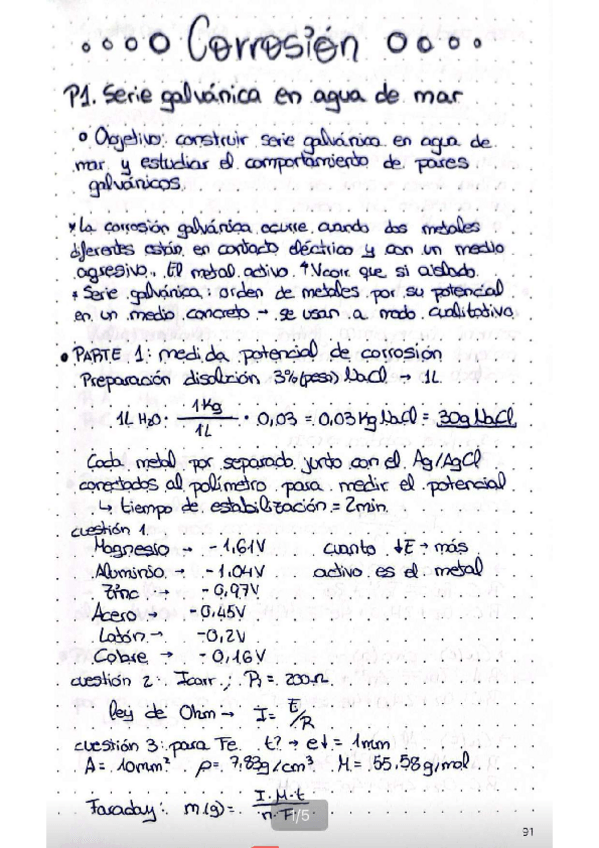 Corrosión
P1. Serie galvánica en agua de mar
Objetivo: construir serie galvánica en agua de
mar y estudiar el comportamiento de pares
galvánicos.
* La corrosión galvánica ocurre cuando dos metales
diferentes están en contacto eléctrico y con un medio
agresivo. El metal activo ↑Vcorr que si aislado.
* Serie galvánica: orden de metales por su potencial
en un medio concreto → se usan a modo cualitativo
• PARTE 1: medida potencial de corrosión
Preparación disolución 3% (peso) NaCl → 1L
1L H2O · 1Kg/1L · 0,03 = 0,03 Kg NaCl = 30g NaCl
Cada metal por separado junto con el Ag/AgCl
conectados al polímetro para medir el potencial
↳ tiempo de estabilización = 2min.
cuestión 1.
Magnesio → -1,61V cuanto ↓E → más
Aluminio → -1,04V activo es el metal
Zinc → -0,97V
Acero → -0,45V
Latón → -0,2V
Cobre → -0,16V
cuestión 2: Icorr.; Pi = 200Ω
ley de Ohm → I = E/R
cuestión 3: para Fe. t? → e↓ = 1mm
A = 10mm² ρ = 7,83g/cm³ M = 55,58g/mol
Faraday: m(g) = I·M·t/n·F
1/5
91